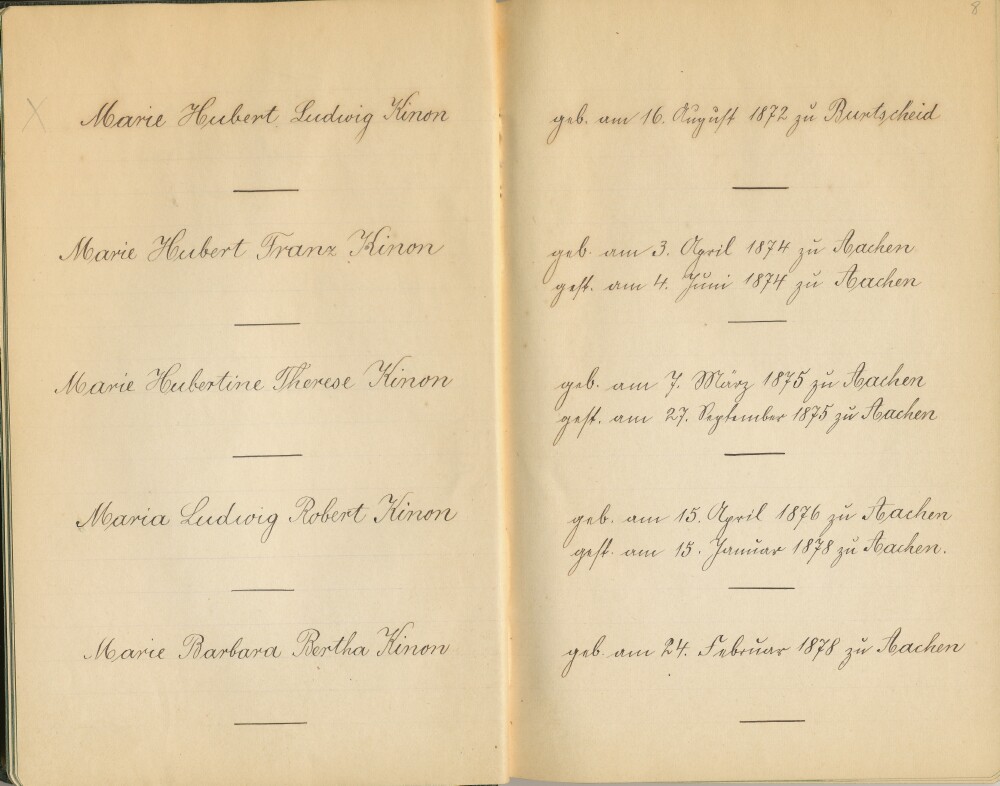 8
X Marie Hubert Ludwig Kinon
geb. am 16. August 1872 zu Burtscheid
Marie Hubert Franz Kinon
geb. am 3. April 1874 zu Aachen
gest. am 4. Juni 1874 zu Aachen
Marie Hubertine Therese Kinon
geb. am 7. März 1875 zu Aachen
gest. am 27. September 1875 zu Aachen
Maria Ludwig Robert Kinon
geb. am 15. April 1876 zu Aachen
gest. am 15. Januar 1878 zu Aachen.
Marie Barbara Bertha Kinon
geb. am 24. Februar 1878 zu Aachen